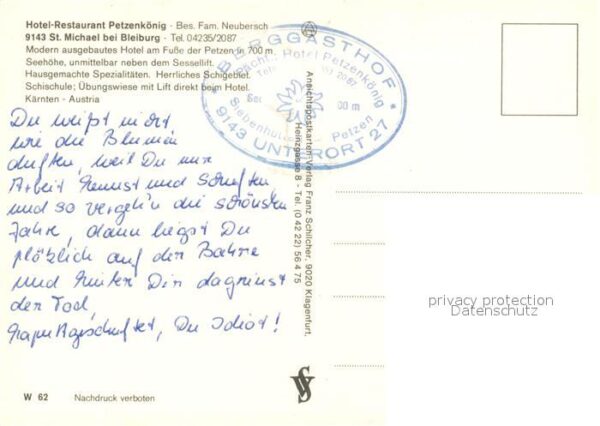 Hotel-Restaurant Petzenkönig · Bes. Fam. Neubersch
9143 St. Michael bei Bleiburg · Tel. 04235/2087
Modern ausgebautes Hotel am Fuße der Petzen in 700 m
Seehöhe, unmittelbar neben dem Sessellift.
Hausgemachte Spezialitäten. Herrliches Schigebiet.
Schischule; Übungswiese mit Lift direkt beim Hotel.
Kärnten - Austria
Du weißt nicht
wie die Blumen
duften, weil Du nur
Arbeit kennst und Schuften
und so vergeh'n die schönsten
Jahre, dann liegst Du
plötzlich auf der Bahre
und hinter Dir da grinst
der Tod,
Du Idiot!
BERGGASTHOF
Pächt.: Hotel Petzenkönig
2087
Siebenhütten Petzen
00 m
9143 UNTERORT 27
Ansichtspostkarten-Verlag Franz Schilcher, 9020 Klagenfurt,
Heinzgasse 8 - Tel. (0 42 22) 56 4 75
privacy protection
Datenschutz
W 62
Nachdruck verboten